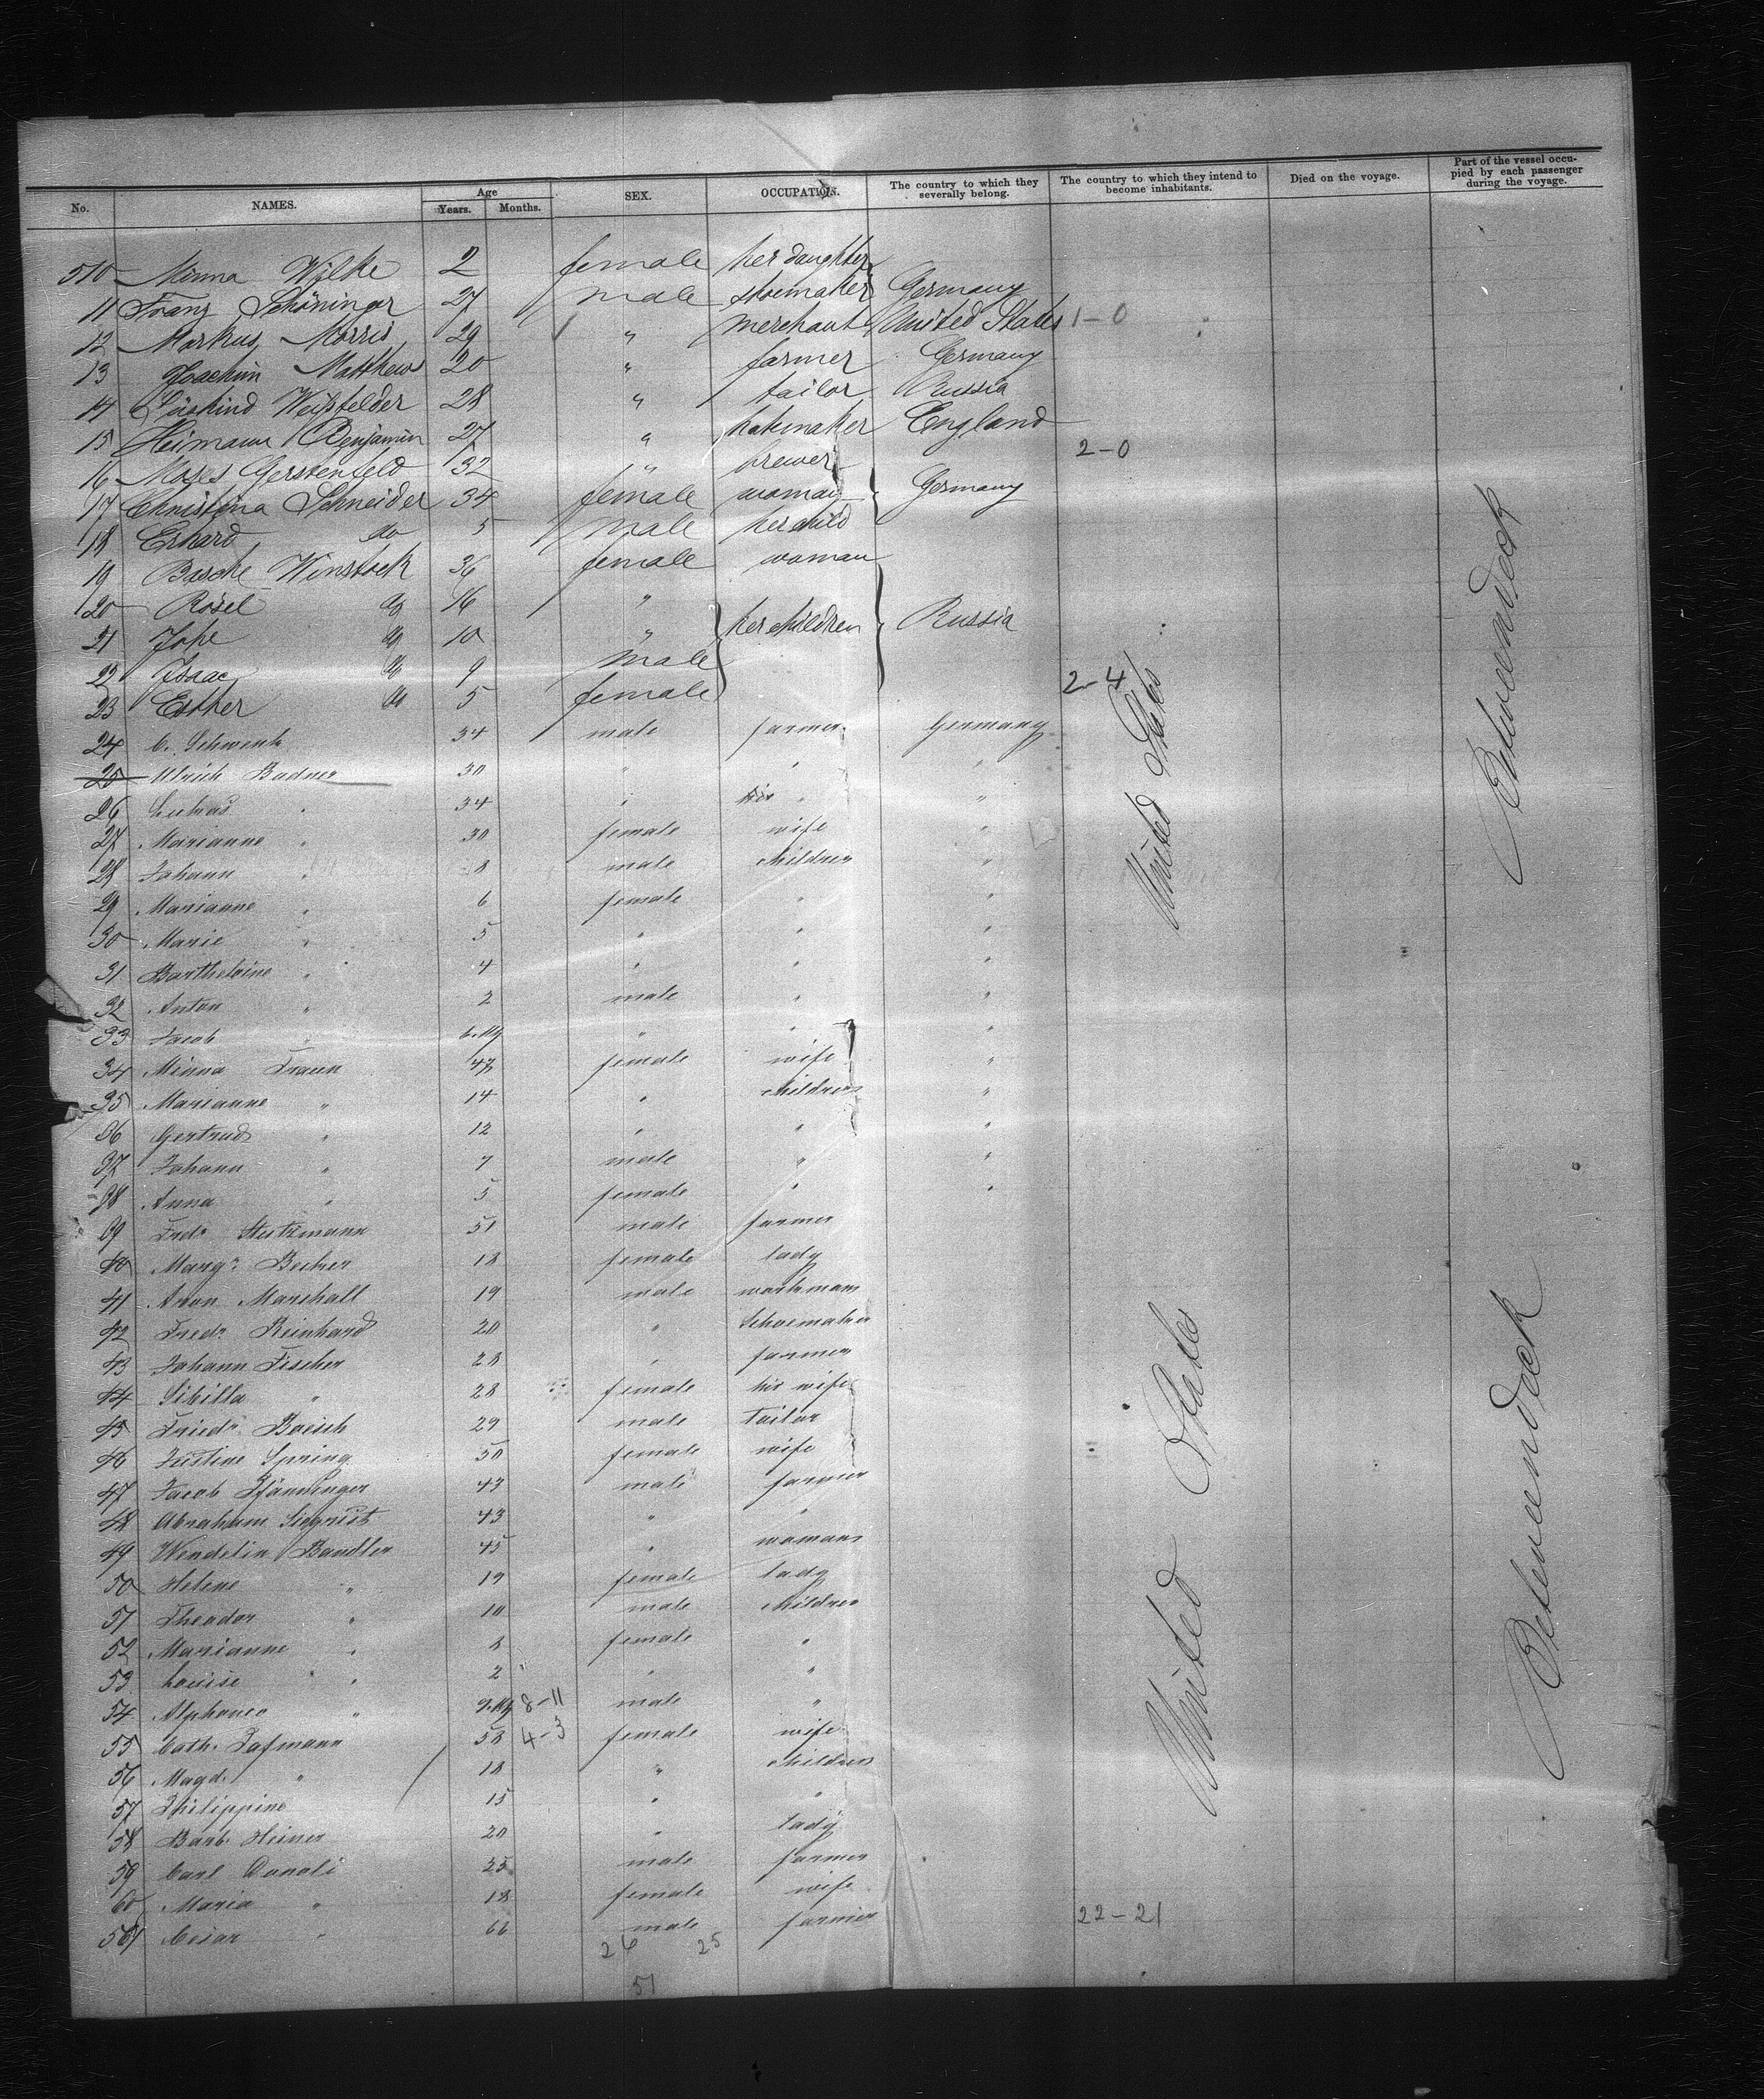 No. NAMES. Age Years. Months. SEX. OCCUPATION. The country to which they severally belong. The country to which they intend to become inhabitants. Died on the voyage. Part of the vessel occupied by each passenger during the voyage.
510 Minna Wilke 2 female her daughter
11 Franz Schöninger 27 male shoemaker Germany
12 Markus Morris 29 " merchant United States 1-0
13 Joachim Matthews 20 " farmer Germany
14 Süskind Weissfelder 28 " tailor Russia
15 Heimann Benjamin 27 " England
2-0
16 Moses Gerstenfeld 32 " brewer
17 Christina Schneider 34 female woman Germany
18 Erhard do 5 male her child
19 Basche Winstock 36 female woman
20 Rosel do 16 "
21 do 10 " her children Russia
22 Isaac do 9 male
2-4
23 Esther do 5 female
24 C. Schwenk 34 male farmer Germany
25 Ulrich Badner 30 " " "
26 Lukas " 34 " " "
27 Marianne " 30 female wife "
28 Johann " 8 male children "
29 Marianne " 6 female " "
30 Marie " 5 " " "
31 " 4 " " "
32 Anton " 2 male " "
33 Jacob " " " "
34 Minna 47 female wife "
35 Marianne " 14 " children "
36 Gertrud " 12 " " "
37 Johann " 7 male " "
38 Anna " 5 female " "
39 Fredr. Stutzmann 51 male farmer
40 Margr. Becher 18 female lady
41 Aron Marshall 19 male workmann
42 Fredr. Reinhard 20 " Schoemaker
43 Johann Fischer 28 " farmer
44 Sibilla " 28 female his wife
45 Friedr. Boesch 29 male Tailor
46 Justine Spring 50 female wife
47 Jacob 43 male farmer
48 Abraham Siegrist 43 " "
49 Wendelin Bandler 45 " womann
50 Helene " 19 female lady
51 Theodor " 10 male children
52 Marianne " 8 female "
53 Louise " 2 " "
54 " 8-11 male "
55 Cath. 58 4-3 female wife
56 Magd. " 18 " children
57 Philippine 15 " "
58 Barb. Heiner 20 " lady
59 Carl Donali 25 male farmer
60 Maria " 18 female wife
561 Cesar " 66 male farmer
22-21
26 25
51
United States
Betweendeck
United States
Betweendeck